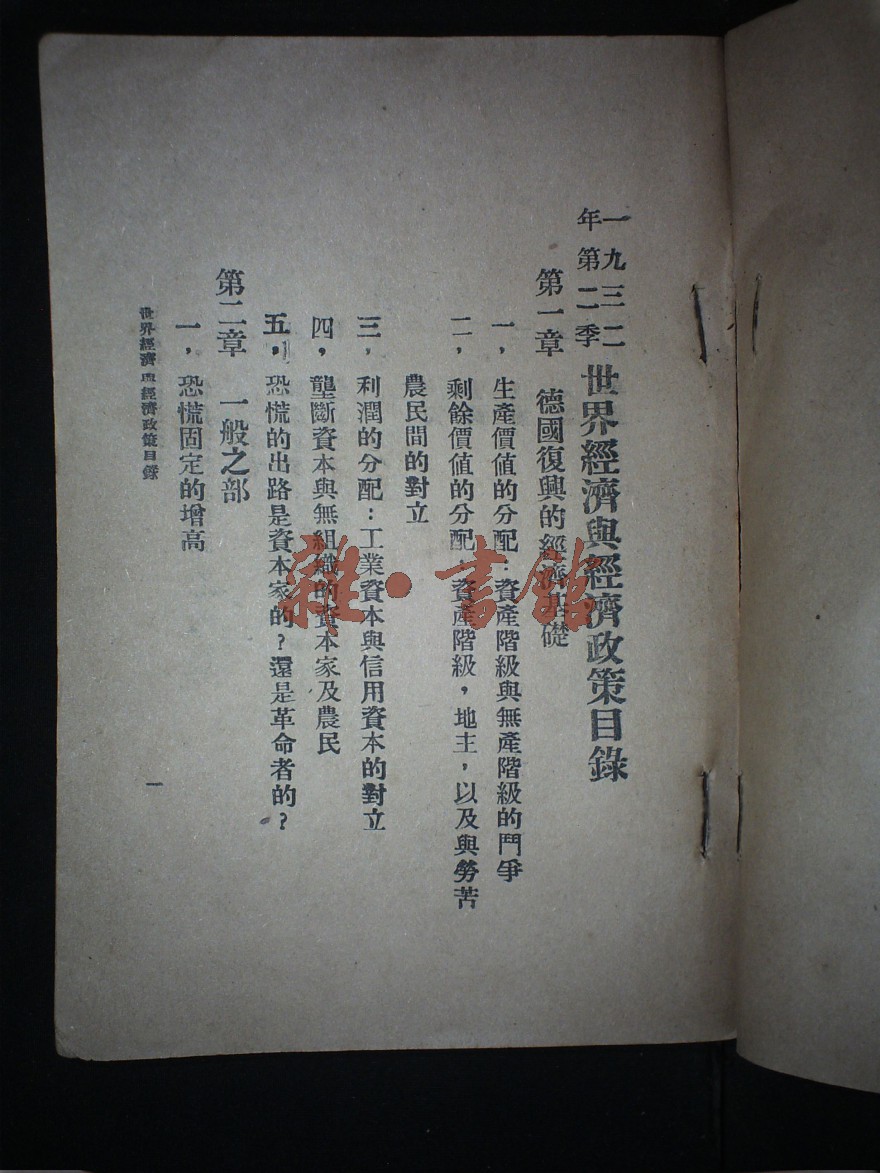 一九三二年第二季 世界經濟與經濟政策目錄
第一章 德國復興的經濟基礎
一，生產價值的分配：資產階級與無產階級的鬥爭
二，剩餘價值的分配：資產階級，地主，以及與勞苦
農民間的對立
三，利潤的分配：工業資本與信用資本的對立
四，壟斷資本與無組織的資本家及農民
五，恐慌的出路是資本家的？還是革命者的？
第二章 一般之部
一，恐慌固定的增高
世界經濟與經濟政策目錄
一
雜·書館